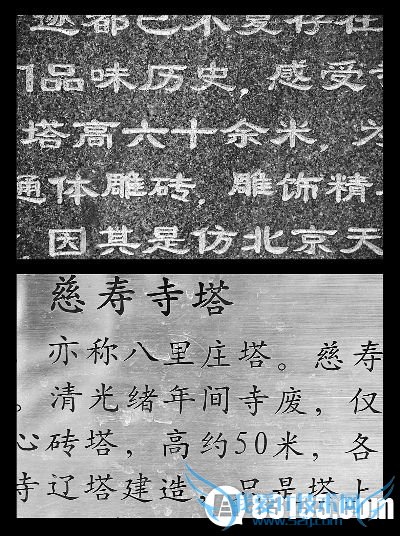 迹都已不复存在
们品味历史，感受
塔高六十余米，为
通体雕砖，雕饰精
因其是仿北京天
慈寿寺塔
亦称八里庄塔。慈寿
。清光绪年间寺废，仅
心砖塔，高约50米，各
寺辽塔建造，只是塔上